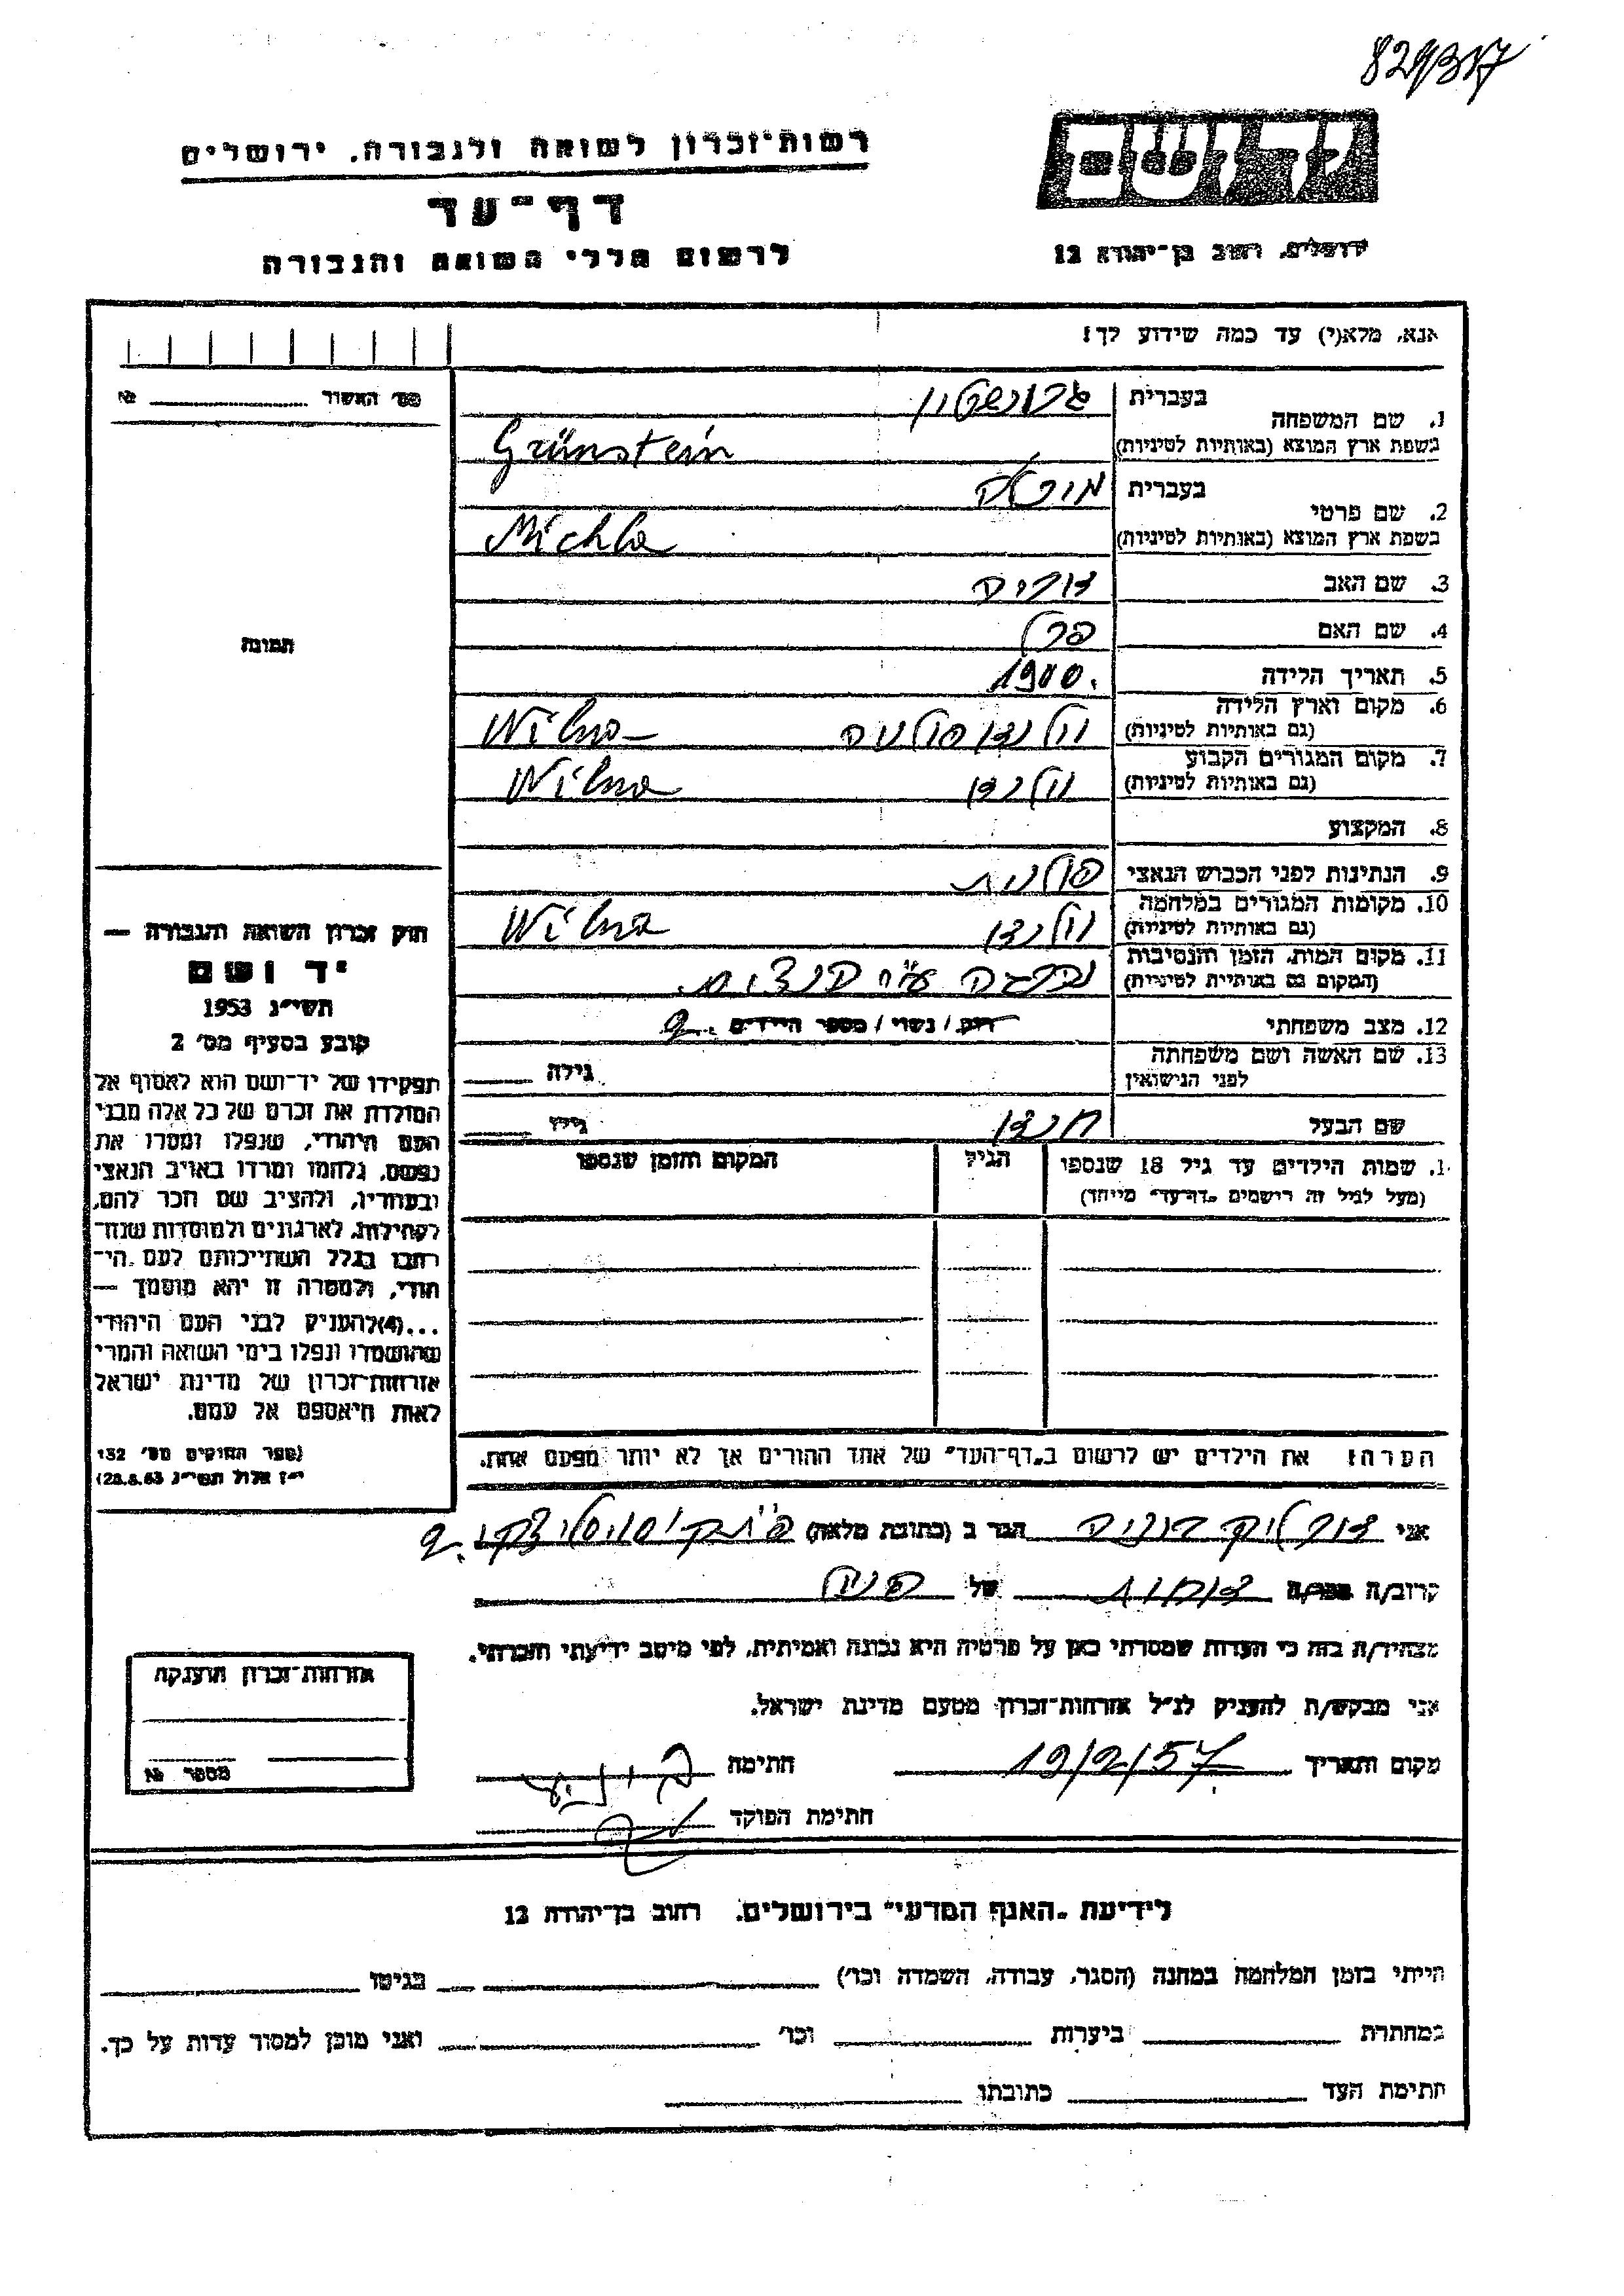 829317
רשות־זכרון לשואה ולגבורה, ירושלים
דף־עד
לרשום חללי השואה והגבורה
יד ושם
ירושלים, רחוב בן־יהודה 12
אנא, מלא(י) עד כמה שידוע לך!
מס׳ האשור № 
1. שם המשפחה
בעברית גרונשטיין
בשפת ארץ המוצא (באותיות לטיניות) Grünstein
2. שם פרטי
בעברית
בשפת ארץ המוצא (באותיות לטיניות) Michla
3. שם האב
4. שם האם
5. תאריך הלידה 1900.
6. מקום וארץ הלידה
(גם באותיות לטיניות) וילנה פולניה Wilna
7. מקום המגורים הקבוע
(גם באותיות לטיניות) וילנה Wilna
8. המקצוע
9. הנתינות לפני הכבוש הנאצי פולנית
10. מקומות המגורים במלחמה
(גם באותיות לטיניות) וילנה Wilna
11. מקום המות, הזמן והנסיבות
(המקום גם באותיות לטיניות) נהרגה ע״י הנצים.
12. מצב משפחתי רווק / נשוי / מספר הילדים 2
13. שם האשה ושם משפחתה
לפני הנישואין גילה
שם הבעל גילו
1. שמות הילדים עד גיל 18 שנספו
(מעל לגיל זה רישמים „דף־עד״ מייחד)
הגיל
המקום והזמן שנספו
הערה: את הילדים יש לרשום ב„דף־העד״ של אחד ההורים אך לא יותר מפעם אחת.
תמונה
חוק זכרון השואה והגבורה —
יד ושם
תשי״ג 1953
קובע בסעיף מס׳ 2
תפקידו של יד־ושם הוא לאסוף אל
המולדת את זכרם של כל אלה מבני
העם היהודי, שנפלו ומסרו את
נפשם, נלחמו ומרדו באויב הנאצי
ובעוזריו, ולהציב שם וזכר להם,
לקהילות, לארגונים ולמוסדות שנח־
רבו בגלל השתייכותם לעם הי־
הודי, ולמטרה זו יהא מוסמך —
...(4)להעניק לבני העם היהודי
שהושמדו ונפלו בימי השואה והמרי
אזרחות־זכרון של מדינת ישראל
לאות היאספם אל עמם.
(ספר החוקים מס׳ 132
י״ז אלול תשי״ג 28.8.53)
אני הגר ב (כתובת מלאה)
קרוב/ה מכר/ה של
מצהיר/ה בזה כי העדות שמסרתי כאן על פרטיה היא נכונה ואמיתית, לפי מיטב ידיעתי והכרתי.
אני מבקש/ת להעניק לנ״ל אזרחות־זכרון מטעם מדינת ישראל.
מקום ותאריך 19/2/57 חתימה
חתימת הפוקד
אזרחות־זכרון הוענקה
מספר №
לידיעת „האגף המדעי״ בירושלים, רחוב בן־יהודה 12
הייתי בזמן המלחמה במחנה (הסגר, עבודה, השמדה וכו׳) בגיטו
במחתרת ביערות וכו׳ ואני מוכן למסור עדות על כך.
חתימת העד כתובתו